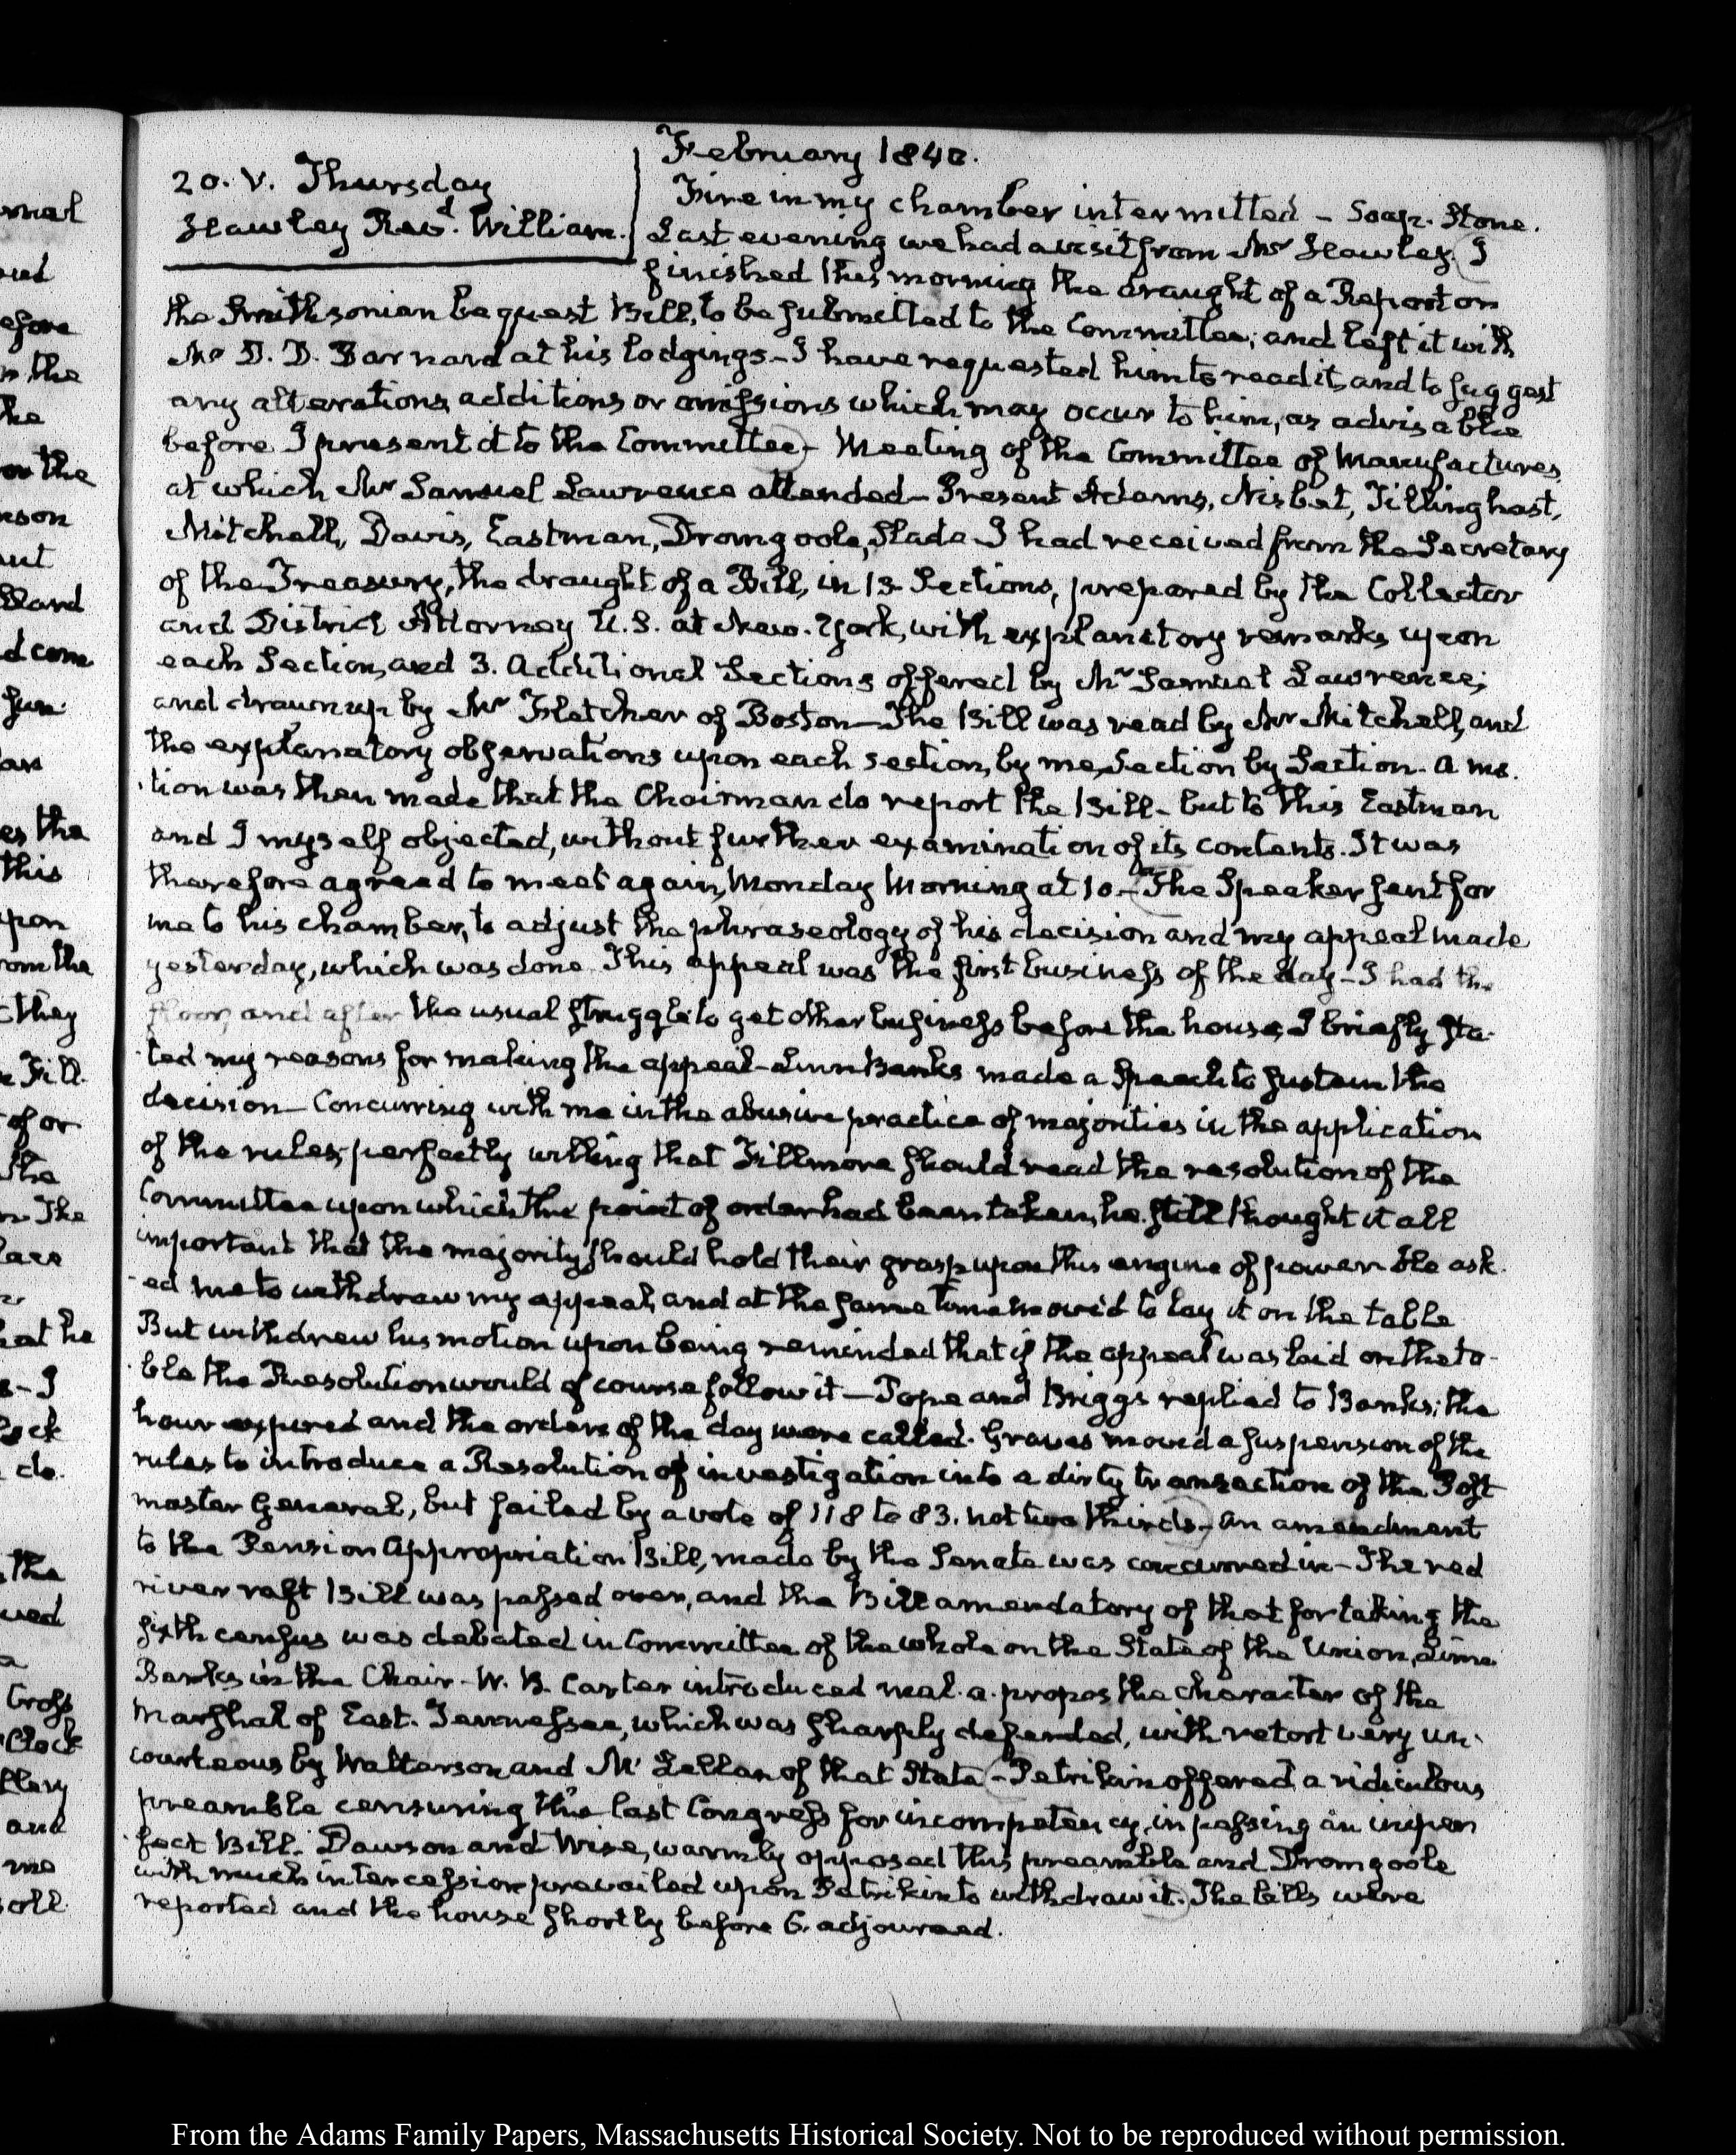 February 1840.
20. V. Thursday
Hawley Revd. William.
Fire in my chamber intermitted - Soap. Stone.
Last evening we had a visit from Mr Hawley. I
finished this morning the draught of a Report on
the Smithsonian bequest Bill, to be submitted to the Committee; and left it with
Mr D. D. Barnard at his lodgings - I have requested him to read it, and to suggest
any alterations additions or omissions which may occur to him, as advisable
before I present it to the Committee - Meeting of the Committee of Manufactures,
at which Mr Samuel Lawrence attended - Present Adams, Nisbet, Tillinghast,
Mitchell, Davis, Eastman, Dromgoole, Slade I had received from the Secretary
of the Treasury, the draught of a Bill, in 13 Sections, prepared by the Collector
and District Attorney U.S. at New. York, with explanatory remarks upon
each Section, and 3. Additional Sections offered by Mr Samuel Lawrence;
and drawn up by Mr Fletcher of Boston - The Bill was read by Mr Mitchell, and
the explanatory observations upon each section, by me, Section by Section. A mo-
tion was then made that the Chairman do report the Bill - but to this Eastman
and I myself objected, without further examination of its contents. It was
therefore agreed to meet again, Monday Morning at 10 - The Speaker sent for
me to his chamber, to adjust the phraseology of his decision and my appeal made
yesterday, which was done. This appeal was the first business of the day - I had the
floor, and after the usual struggle to get other business before the house, I briefly sta-
ted my reasons for making the appeal - Linn Banks made a Speech to sustain the
decision - Concurring with me in the abusive practice of majorities in the application
of the rules; perfectly willing that Fillmore should read the resolution of the
Committee upon which the point of order had been taken, he still thought it all
important that the majority should hold their grasp upon this engine of power. He ask-
ed me to withdraw my appeal, and at the same time moved to lay it on the table
But withdrew his motion upon being reminded that if the appeal was laid on the ta-
ble the Resolution would of course follow it - Pope and Briggs replied to Banks; the
hour expired and the orders of the day were called. Graves moved a suspension of the
rules to introduce a Resolution of investigation into a dirty transaction of the Post
master General, but failed by a vote of 118 to 83. not two thirds - An amendment
to the Pension Appropriation Bill, made by the Senate was concurred in - The red
river raft Bill was passed over, and the Bill amendatory of that for taking the
sixth census was debated in Committee of the whole on the State of the Union, Linn
Banks in the Chair - W. B. Carter introduced mal. a. propos the character of the
Marshal of East. Tennessee, which was sharply defended, with retort very un-
courteous by Watterson and Mc Lellan of that State - Petrikin offered a ridiculous
preamble censuring the last Congress for incompetency, in passing an imper-
fect Bill. Dawson and Wise, warmly opposed this preamble and Dromgoole
with much intercession prevailed upon Petrikin to withdraw it. The bills were
reported and the house shortly before 6. adjourned.
From the Adams Family Papers, Massachusetts Historical Society. Not to be reproduced without permission.